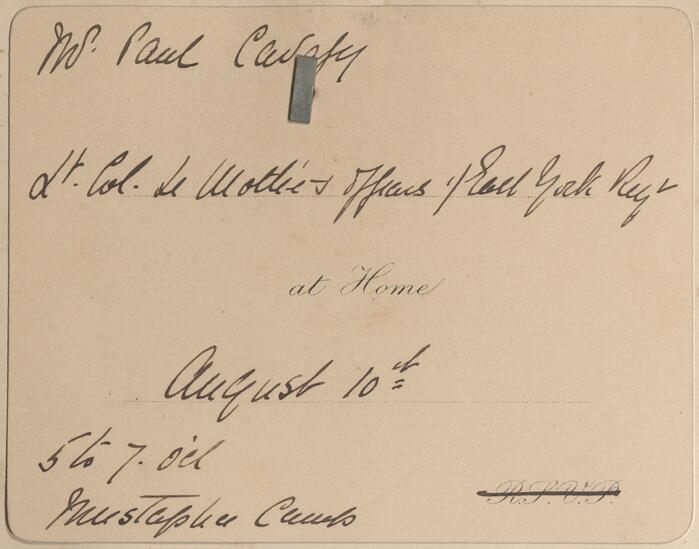 Mr. Paul Cavafy
Lt. Col. Le Mottée & Officers of East York Regt
at Home
August 10th
5 to 7. o'cl
Mustapha Camp
R.S.V.P.